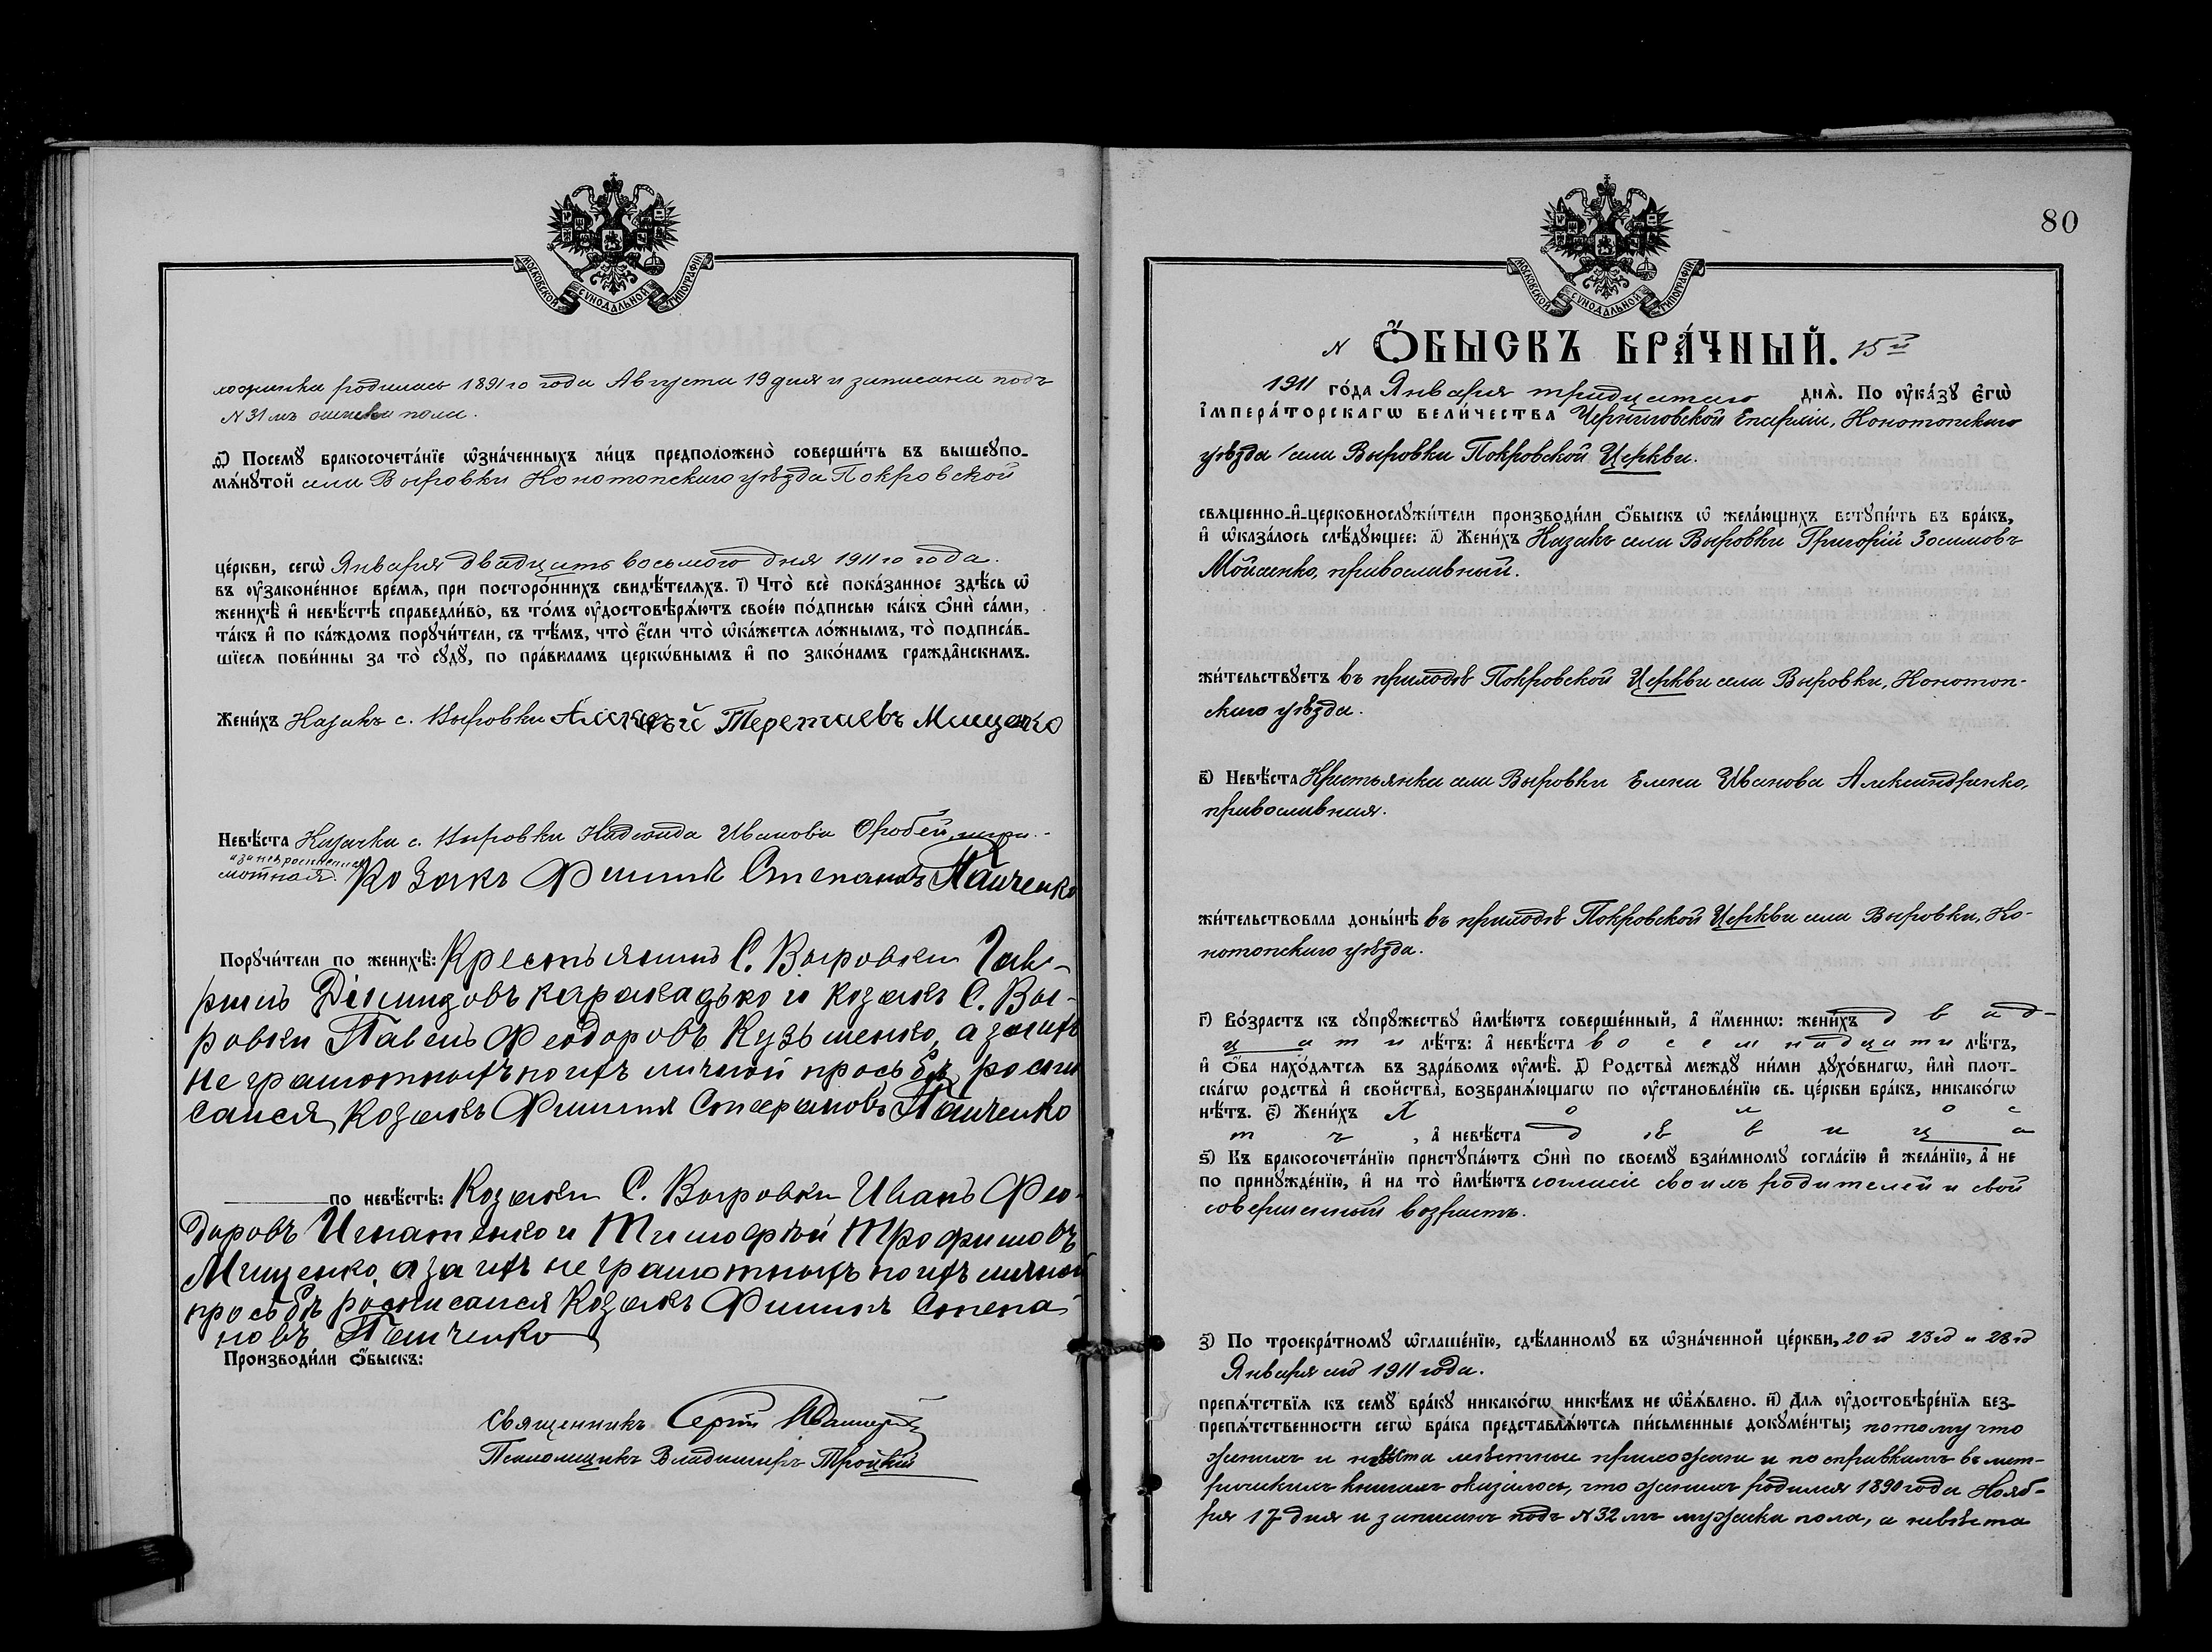 МОСКОВСКОЙ СУНОДАЛЬНОЙ ТИПОГРАФІИ
родилась 1891го года Августа 19 дня и записана подъ
N 31мъ женска пола.
Ѳ҃) Посемꙋ бракосочета́нїе ѡ҆зна́ченныхъ ли́цъ предположено̀ соверши́ть въ вышеупо-
мѧ́нꙋтой села Выровки Конотопскаго уѣзда Покровской
це́ркви, сегѡ̀ Января двадцать восьмого дня 1911го года.
въ ᲂу҆законе́нное вре́мѧ, при посторо́ннихъ свидѣ́телѧхъ. І҃) Что̀ всѐ пока́занное здѣ́сь ѡ҆
женихѣ̀ и҆ невѣ́стѣ справедли́во, въ то́мъ ᲂу҆достовѣрѧ́ютъ свое́ю по́дписью ка́къ ѻ҆нѝ са́ми,
та́къ и҆ по ка́ждомъ порꙋчи́тели, съ тѣ́мъ, что̀ є҆́сли что̀ ѡ҆ка́жетсѧ ло́жнымъ, то̀ подписа́в-
шїесѧ пови́нны за то̀ сꙋдꙋ̀, по пра́виламъ церкѡ́внымъ и҆ по зако́намъ гражда̂нскимъ.
Жени́хъ Казакъ с. Выровки Алексѣй Терентиевъ Мищенко
Невѣ́ста Казачка с. Выровки Надежда Иванова Оробей, негра-
а за нея росписался
мотная. Козакъ Филиппъ Степановъ Панченко
Порꙋчи́тели по женихѣ̀: Крестьянинъ С. Выровки Гав-
рилъ Діомидовъ Каракадько и козакъ С. Вы-
ровки Павелъ Феодоровъ Кузьменко, а за ихъ
не грамотныхъ по ихъ личной просьбѣ роспи
сался Козакъ Филиппъ Степановъ Панченко
по невѣ́стѣ: Козаки С. Выровки Иванъ Фео-
доровъ Игнатенко и Тимофѣй Трофимовъ
Мищенко, а за ихъ не грамотныхъ по ихъ личной
просьбѣ росписался Козакъ Филиппъ Степа-
новъ Панченко
Производи́ли ѻ҆́быскъ:
Священникъ Сергій
Псаломщикъ Владимиръ Троцкій
80
МОСКОВСКОЙ СУНОДАЛЬНОЙ ТИПОГРАФІИ
N Ѻ҆́БЫСКЪ БРА́ЧНЫЙ. 15й
1911 го́да Января тридцатаго днѧ̀. По ᲂу҆ка́зꙋ є҆гѡ̀
і҆мпера́торскагѡ вели́чества Черниговской Епархіи, Конотопскаго
уѣзда села Выровки Покровской Церкви.
свѧщенно-и҆-церковнослꙋжи́тели производи́ли ѻ҆́быскъ ѡ҆ жела́ющихъ встꙋпи́ть въ бра́къ,
и҆ ѡ҆каза́лось слѣ́дꙋющее: А҃) Жени́хъ Казакъ села Выровки Григорій Зосимовъ
Мойсенко, православный.
жи́тельствꙋетъ въ приходѣ Покровской Церкви села Выровки, Конотоп-
скаго уѣзда.
В҃) Невѣ́ста Крестьянка села Выровки Елена Иванова Александренко,
православная.
жи́тельствовала доны́нѣ въ приходѣ Покровской Церкви села Выровки, Ко-
нотопскаго уѣзда.
Г҃) Во́зрастъ къ сꙋпрꙋ́жествꙋ и҆мѣ́ютъ соверше́нный, а҆ и҆́меннѡ: жени́хъ двад-
цати лѣ́тъ: а҆ невѣ́ста восемнадцати лѣ́тъ,
и҆ ѻ҆́ба нахо́дѧтсѧ въ здра́вомъ ᲂу҆мѣ̀. Д҃) Родства̀ междꙋ̀ ни́ми дꙋхо́внагѡ, и҆лѝ плот-
ска́гѡ родства̀ и҆ сво́йства, возбранѧ́ющагѡ по ᲂу҆становле́нїю св. це́ркви бра́къ, никако́гѡ
нѣ́тъ. Є҃) Жени́хъ холос
тъ, а҆ невѣ́ста дѣвица
Ѕ҃) Къ бракосочета́нїю пристꙋпа́ютъ ѻ҆нѝ по своемꙋ̀ взаи́мномꙋ согла́сїю и҆ жела́нїю, а҆ не
по принꙋжде́нїю, и҆ на то̀ и҆мѣ́ютъ согласіе своихъ родителей и свой
совершенный возрастъ.
З҃) По троекра́тномꙋ ѡ҆глаше́нїю, сдѣ́ланномꙋ въ ѡ҆зна́ченной це́ркви, 20го 23го и 28го
Января сего 1911 года.
препѧ́тствїѧ къ семꙋ̀ бра́кꙋ никако́гѡ никѣ́мъ не ѡ҆б̾ѧ́влено. И҃) Длѧ ᲂу҆достовѣре́нїѧ без-
препѧ́тственности сегѡ̀ бра́ка представлѧ́ютсѧ пи́сьменные докꙋме́нты; потому что
женихъ и невѣста мѣстные прихожане и по справкамъ въ мет-
рическихъ книгахъ оказалось, что женихъ родился 1890 года Нояб-
ря 17 дня и записанъ подъ N 32мъ мужска пола, а невѣста